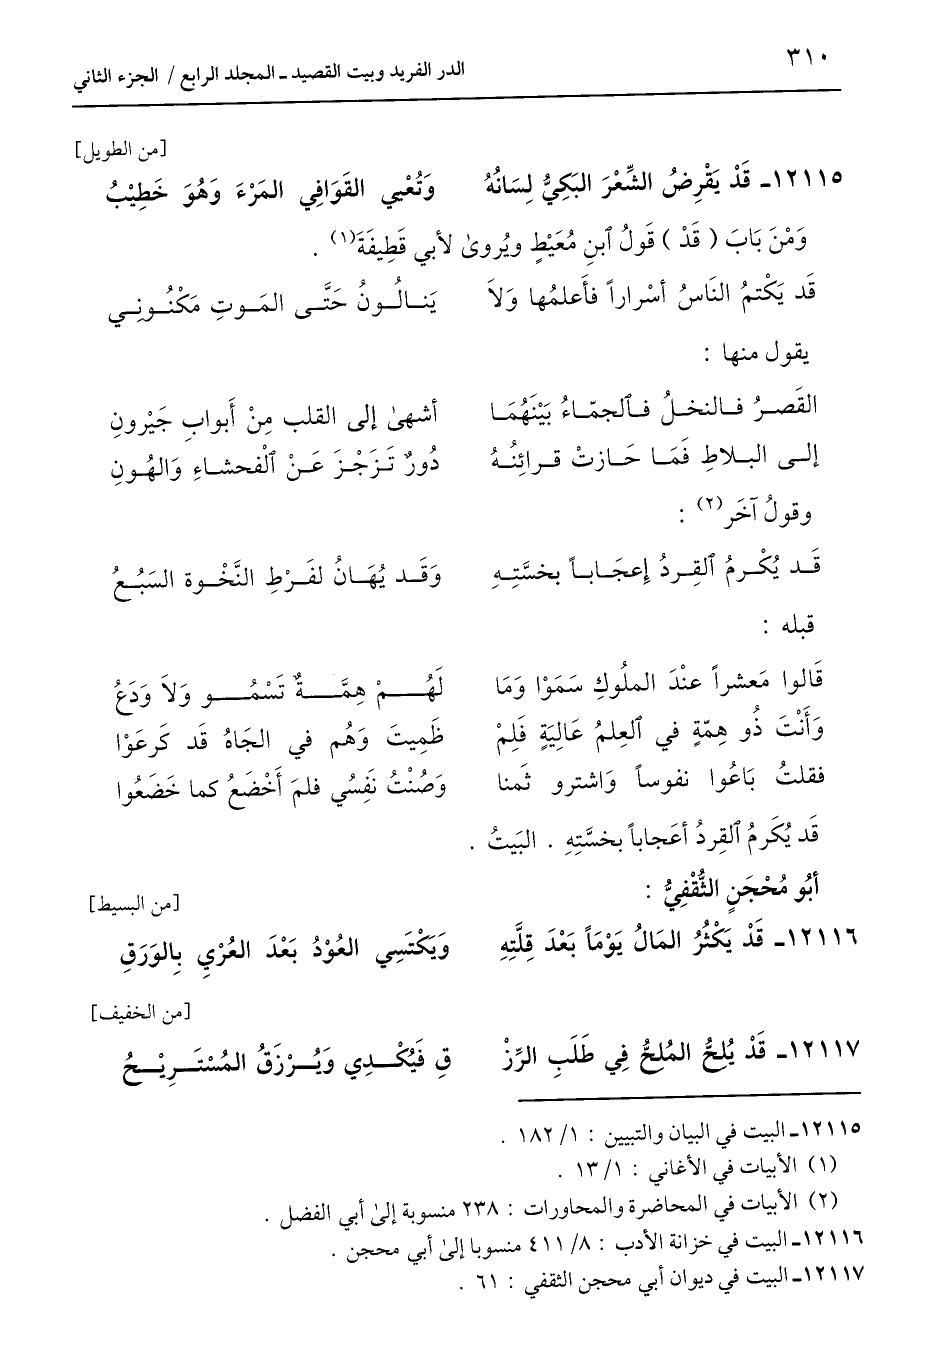 ٣١٠
الدر الفريد وبيت القصيد ـ المجلد الرابع / الجزء الثاني
[من الطويل]
١٢١١٥ـ قَدْ يَقْرِضُ الشِّعْرَ البَكِيُّ لِسَانُهُ وَتُعْيي القَوَافِي المَرْءَ وَهُوَ خَطِيْبُ
وَمْنَ بَابَ ( قَدْ ) قَولُ ٱبنِ مُعَيْطٍ ويُروىٰ لأبي قَطِيفَةَ(١) .
قَد يَكْتمُ النَاسُ أسْراراً فأَعلمُها وَلاَ يَنالُونُ حَتَّى المَوتِ مَكْنُونِي
يقول منها :
القَصرُ فالنخلُ فٱلجمّاءُ بَيْنَهُمَا أشهىٰ إلى القلب مِنْ أَبوابِ جَيْرونِ
إلى البلاطِ فَمَا حَازتْ قرائِنُهُ دُورٌ تَزَجْزَ عَنْ ٱلْفحشاءِ وَالهُونِ
وقولُ آخَر(٢) :
قَد يُكْرمُ ٱلقِردُ إعجَاباً بخسَّتِهِ وَقَد يُهَانُ لفَرْطِ النَّخْوة السَبُعُ
قبله :
قَالوا مَعشراً عنْدَ الملُوكِ سَمَوْا وَمَا لَهُمْ هِمَّةٌ تَسْمُو وَلاَ وَدَعُ
وَأَنْتَ ذُو هِمّةٍ في ٱلعِلمُ عَاليَةٍ فَلِمْ ظَمِيتَ وَهُم في الجَاهُ قَد كَرعَوْا
فقلتُ بَاعُوا نفوساً وَاشترو ثَمنا وَصُنْتُ نَفِسُي فلمَ أَخْضَعُ كما خَضَعُوا
قَد يُكَرمُ ٱلقِردُ أعَجاباً بخسَّتِهِ . البَيتُ .
أبُو مُحْجَنٍ الثُّقْفِيُّ :
[من البسيط]
١٢١١٦ـ قَدْ يَكْثُرُ المَالُ يَوْمَاً بَعْدَ قِلَّتِهِ وَيَكْتَسِي العُوْدُ بَعْدَ العُرْيِ بِالوَرَقِ
[من الخفيف]
١٢١١٧ـ قَدْ يُلِحُّ المُلحُّ فِي طَلَبِ الرِّزْ قِ فَيُكْدِي وَيُرْزَقُ المُسْتَرِيْحُ
١٢١١٥ـ البيت في البيان والتبيين : ١/ ١٨٢ .
(١) الأبيات في الأغاني : ١/ ١٣ .
(٢) الأبيات في المحاضرة والمحاورات : ٢٣٨ منسوبة إلىٰ أبي الفضل .
١٢١١٦ـ البيت في خزانة الأدب : ٨/ ٤١١ منسوبا إلىٰ أبي محجن .
١٢١١٧ـ البيت في ديوان أبي محجن الثقفي : ٦١ .